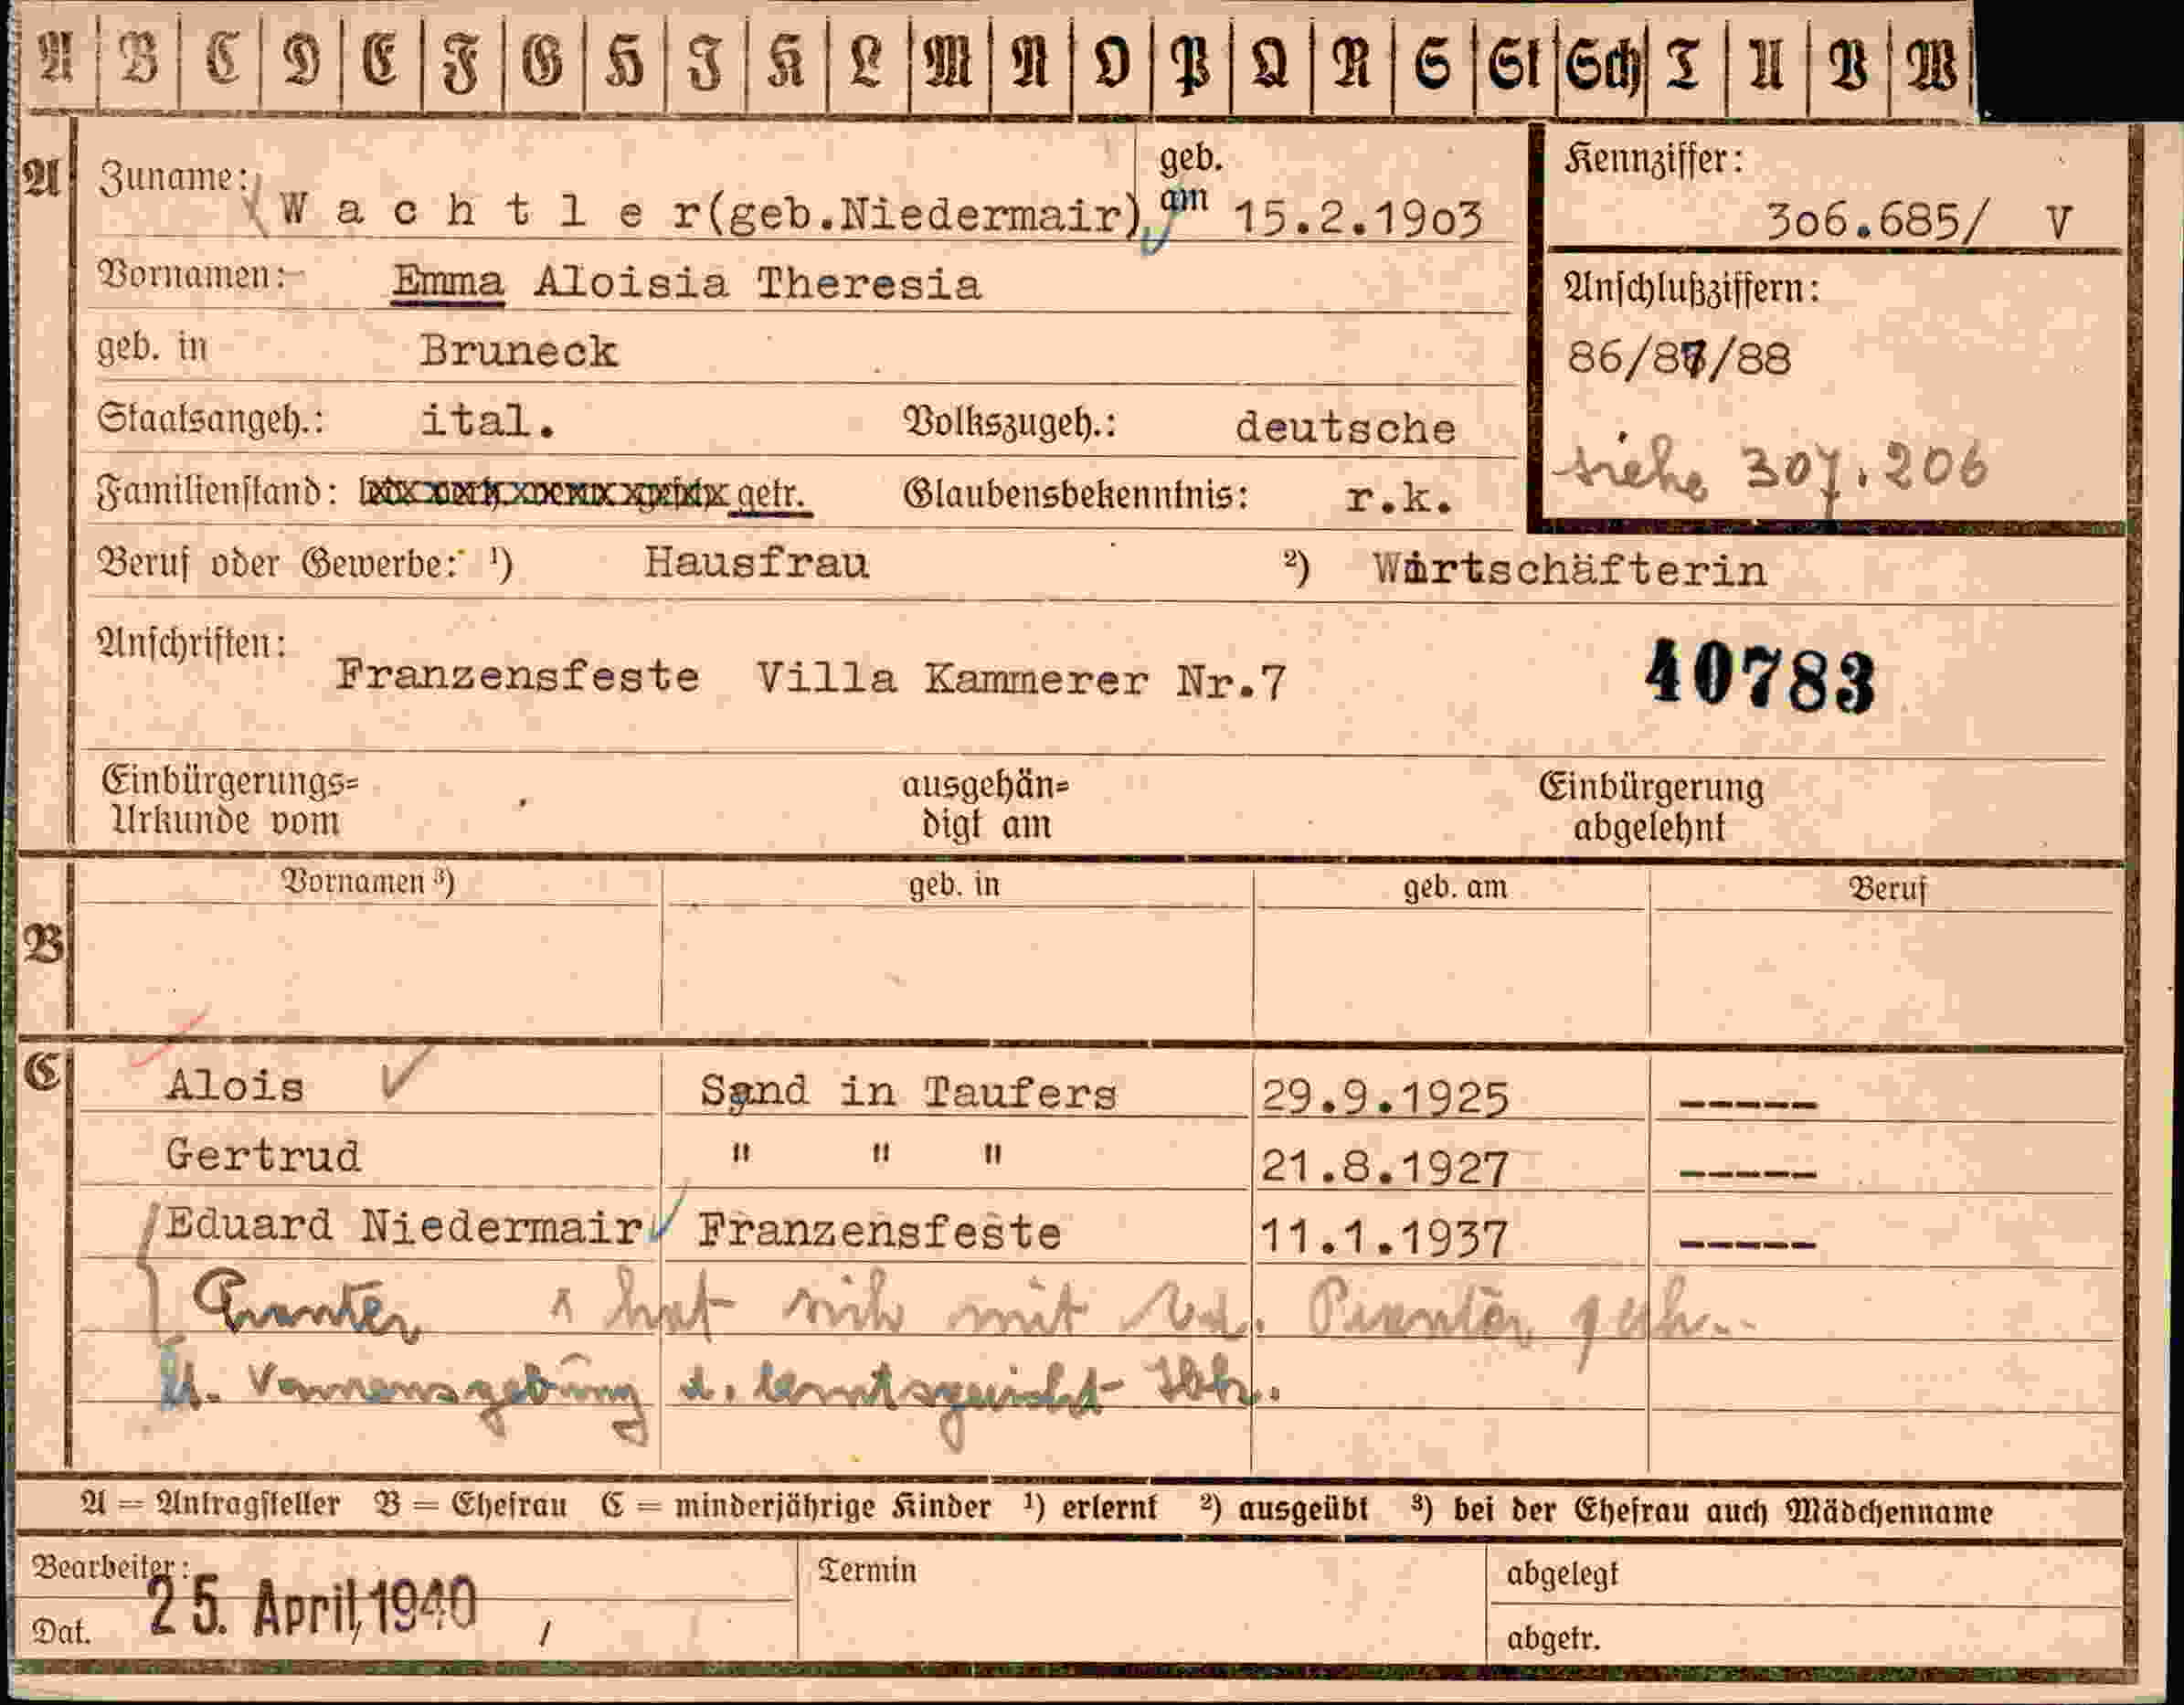 A B C D E F G H I K L M N O P Q R S St Sch T U V W
A Zuname: W a c h t l e r(geb.Niedermair), geb. am 15.2.19o3
Kennziffer: 3o6.685/ V
Vornamen: Emma Aloisia Theresia
geb. in Bruneck
Anschlußziffern:
86/87/88
siehe 307.206
Staatsangeh.: ital. Volkszugeh.: deutsche
Familienstand: getr. Glaubensbekenntnis: r.k.
Beruf oder Gewerbe: ¹) Hausfrau ²) Wirtschäfterin
Anschriften: Franzensfeste Villa Kammerer Nr.7
40783
Einbürgerungs=
Urkunde vom
ausgehän=
digt am
Einbürgerung
abgelehnt
B Vornamen ³) geb. in geb. am Beruf
C Alois Sand in Taufers 29.9.1925 -----
Gertrud " " " 21.8.1927 -----
Eduard Niedermair Franzensfeste 11.1.1937 -----
hat sich mit
A = Antragsteller B = Ehefrau C = minderjährige Kinder ¹) erlernt ²) ausgeübt ³) bei der Ehefrau auch Mädchenname
Bearbeiter:
Dat. 25. April 1940
Termin
abgelegt
abgetr.